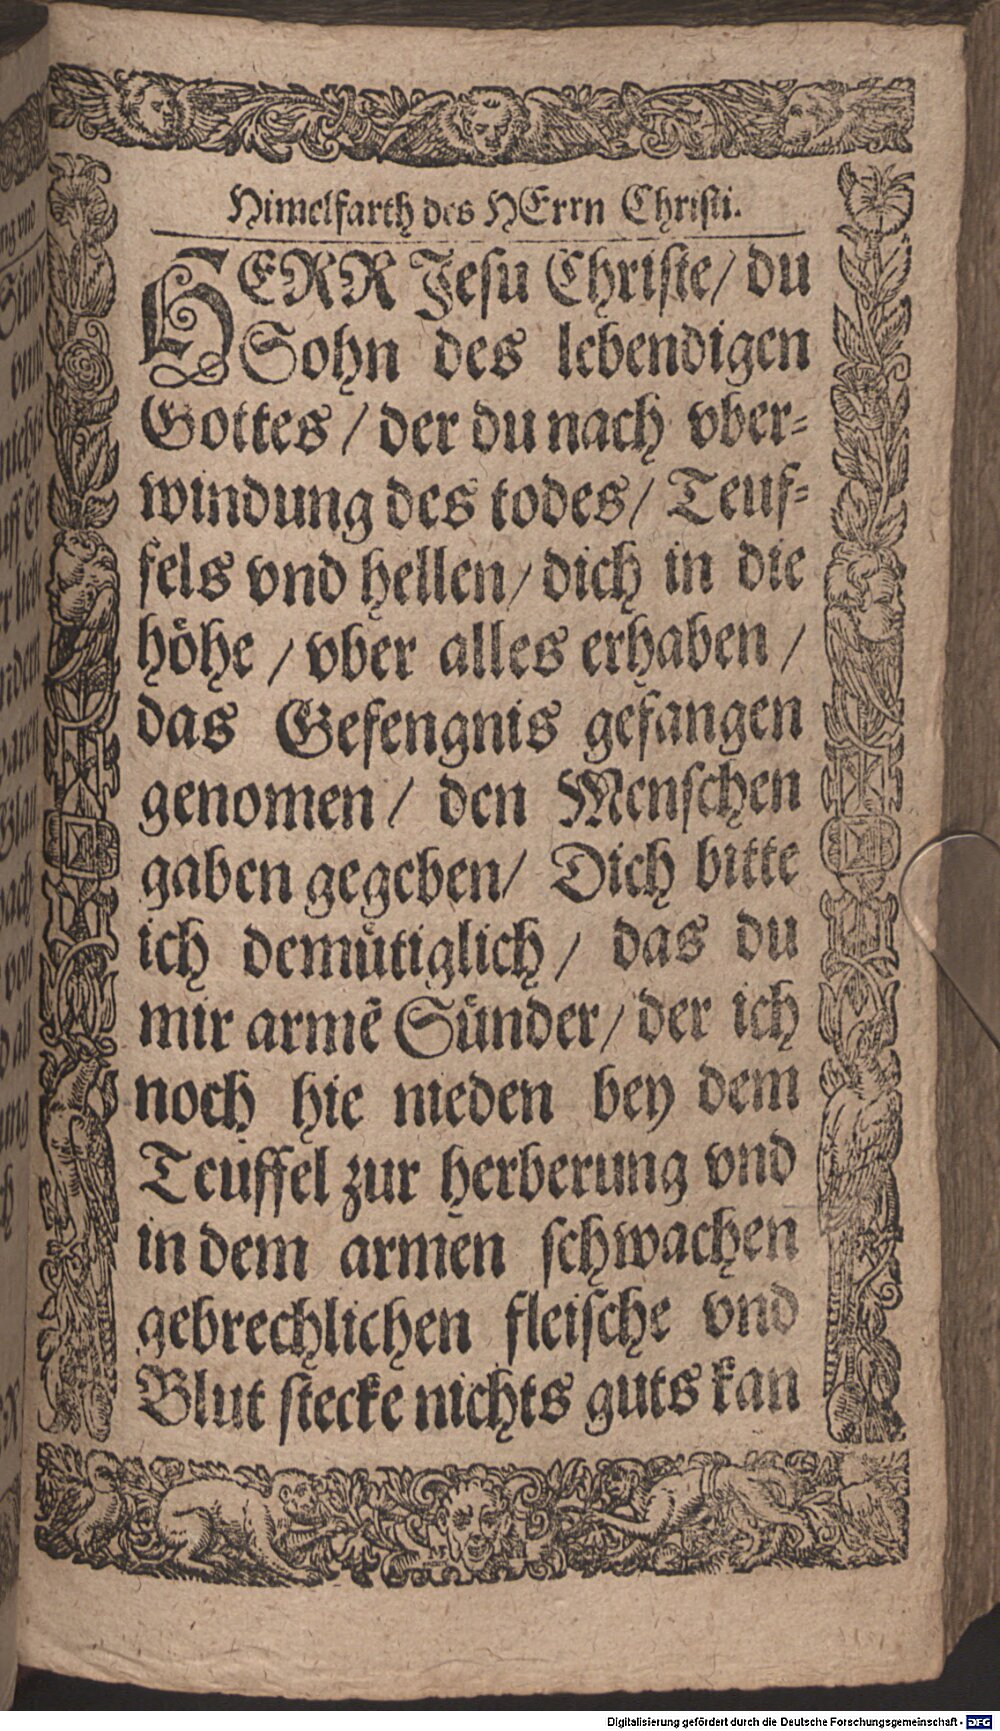 Himelfarth des HErrn Christi.
HERR Jesu Christe/ du
Sohn des lebendigen
Gottes / der du nach vber-
windung des todes/ Teuf-
fels vnd hellen/ dich in die
höhe / vber alles erhaben /
das Gefengnis gefangen
genomen / den Menschen
gaben gegeben/ Dich bitte
ich demütiglich / das du
mir armẽ Sünder/ der ich
noch hie nieden bey dem
Teuffel zur herberung vnd
in dem armen schwachen
gebrechlichen fleische vnd
Blut stecke nichts guts kan
Digitalisierung gefördert durch die Deutsche Forschungsgemeinschaft - DFG